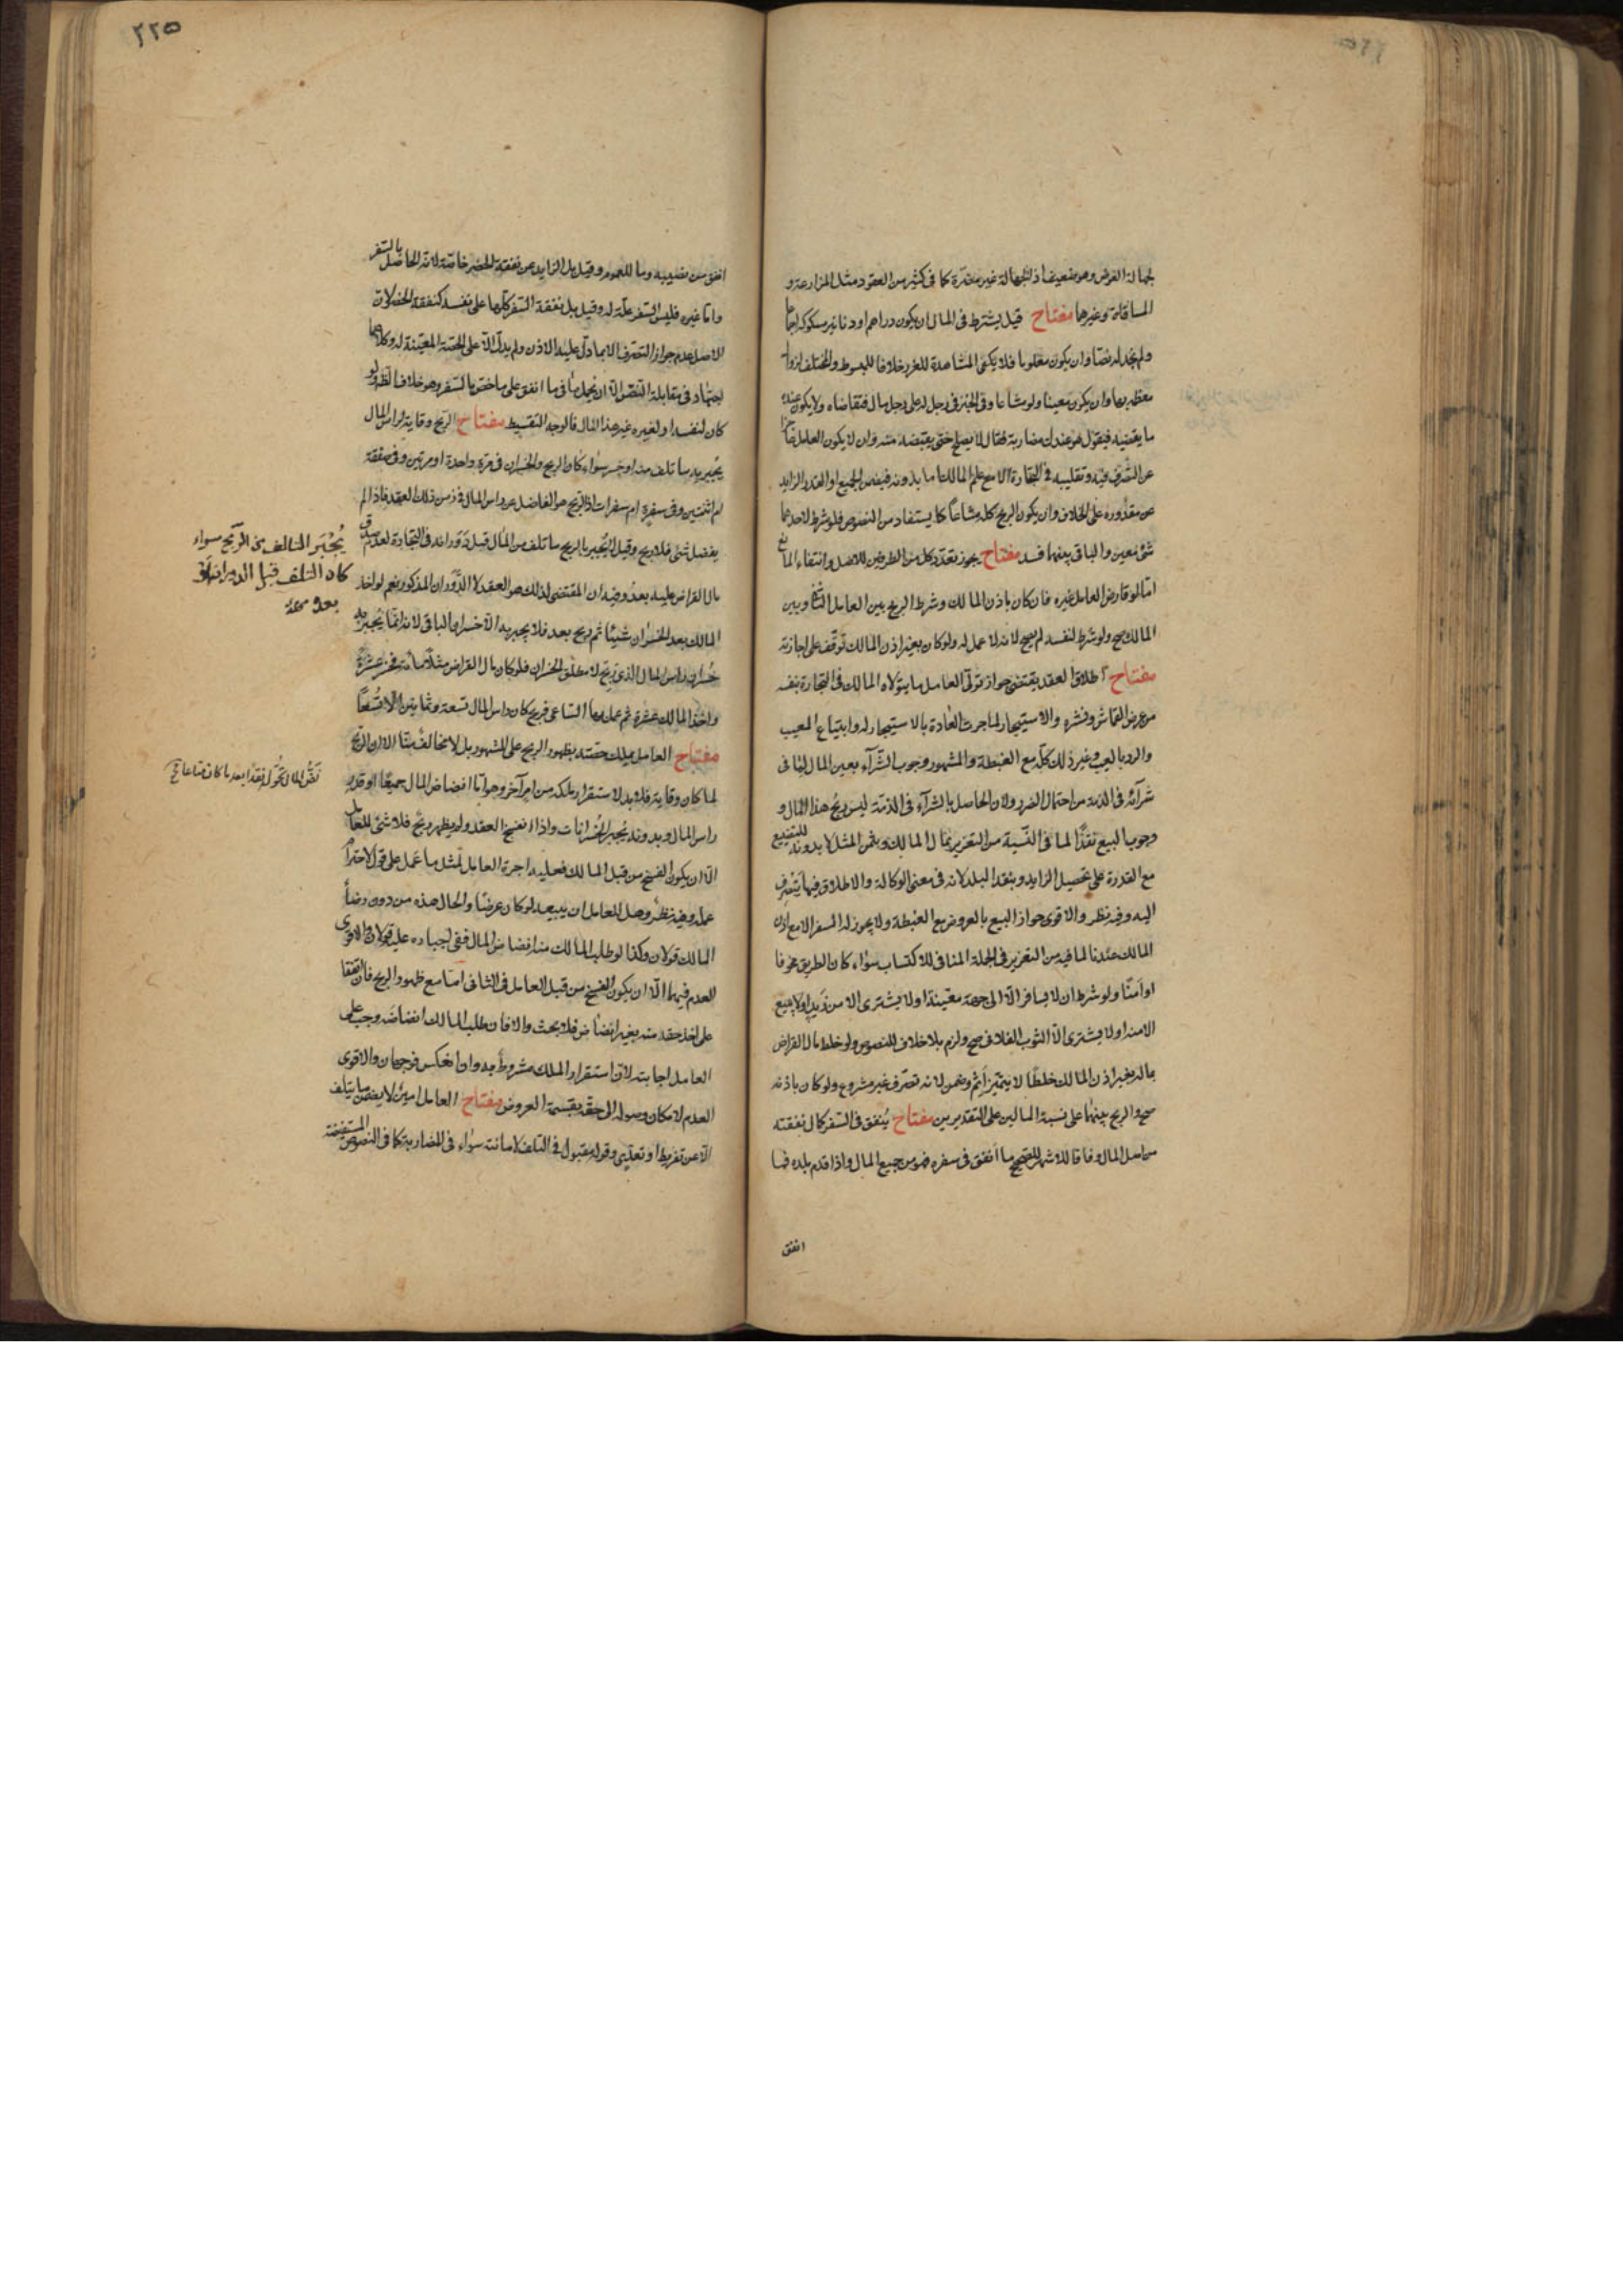 لجهالة العوض وهو ضعيف اذ الجهالة غير مضرة كما فى كثير من العقود مثل المزارعة و
المساقاة وغيرهما مفتاح قيل يشترط فى المال ان يكون دراهم او دنانير مسكوكة اجماعا
ولم نجد له نصا وان يكون معلوما فلا يكفى المشاهدة للغرر خلافا للمبسوط والمختلف لزوال
معظمه بها وان يكون معينا ولو مشاعا وفى الخبر فى رجل له على رجل مال فتقاضاه ولا يكون عنده
ما يقضيه فيقول هو عندك مضاربة فقال لا يصلح حتى يقبضه منه وان لا يكون العامل عاجزا
عن التصرف فيه وتقليبه فى التجارة الا مع علم المالك ما بدونه فيضمن الجميع او القدر الزايد
عن مقدوره على الخلاف وان يكون الربح كله مشاعا كما يستفاد من النصوص فلو شرط لاحدهما
شئ معين والباقى بينهما فسد مفتاح يجوز تعدد كل من الطرفين للاصل وانتفاء المانع
اما لو قارض العامل غيره فان كان باذن المالك وشرط الربح بين العامل الثانى وبين
المالك صح ولو شرط لنفسه لم يصح لانه لا عمل له ولو كان بغير اذن المالك توقف على اجازته
مفتاح اطلاق العقد يقتضى جواز تولى العامل ما يتولاه المالك فى التجارة بنفسه
من عرض القماش ونشره والاستيجار لما جرت العادة بالاستيجار له وابتياع المعيب
والرد بالعيب وغير ذلك كله مع الغبطة والمشهور وجوب الشرآء بعين المال لما فى
شرآئه فى الذمة من احتمال الضرر ولان الحاصل بالشرآء فى الذمة ليس ربح هذا المال و
وجوب البيع نقدا لما فى النسية من التغرير بمال المالك وبثمن المثل لا بدونه للتضييع
مع القدرة على تحصيل الزايد وبنقد البلد لانه فى معنى الوكالة والاطلاق فيها ينصرف
اليه وفيه نظر والاقوى جواز البيع بالعروض مع الغبطة ولا يجوز له السفر الا مع اذن
المالك عندنا لما فيه من التغرير فى الجملة المنافى للاكتساب سواء كان الطريق مخوفا
او امنا ولو شرط ان لا يسافر الا الى جهة معينة او لا يشترى الا من زيد او لا يبيع
الا منه او لا يشترى الا الثوب الفلانى صح ولزم بلا خلاف للنصوص ولو خلط مال القراض
بماله بغير اذن المالك خلطا لا يتميز اثم وضمن لانه تصرف غير مشروع ولو كان باذنه
صح والربح بينهما على نسبة المالين على التقديرين مفتاح ينفق فى السفر كمال نفقته
من اصل المال وفاقا للاشهر للصحيح ما انفق فى سفره فهو من جميع المال واذا قدم بلده فما
انفق
٢٢٥
انفق من نصيبه وما للعموم وقيل بل الزايد عن نفقة الحضر خاصة لانه الحاصل بالسفر
واما غيره فليس السفر علة له وقيل بل نفقة السفر كلها على نفسه كنفقة الحضر لان
الاصل عدم جواز التصرف الا بما دل عليه الاذن ولم يدل الا على الحصة المعينة له وكلاهما
اجتهاد فى مقابلة النص الا ان نحمل ما فى ما انفق على ما ختص بالسفر وهو خلاف الظهور ولو
كان لنفسه او لغيره غير هذا المال فالوجه التقسيط مفتاح الربح وقاية لراس المال
يجبر به ما تلف منه او خسر سواء كان الربح والخسران فى مرة واحدة او مرتين وفى صفقة
ام اثنتين وفى سفرة ام سفرات اذ الربح هو الفاضل عن راس المال فى زمن ذلك العقد فاذا لم
يفضل شئ فلا ربح وقيل لا يجبر بالربح ما تلف من المال قبل دورانه فى التجارة لعدم صدق
مال القراض عليه بعد وفيه ان المقتضى لذلك هو العقد لا الدوران المذكور نعم لو اخذ
المالك بعد الخسران شيئا ثم ربح بعد فلا يجبر به الا خسران الباقى لانه انما يجبر به
خسران راس المال الذى ربح لا مطلق الخسران فلو كان مال القراض مثلا مأة فخسر عشرة
واخذ المالك عشرة ثم عمل بها الساعى فربح كان راس المال تسعة وثمانين الا تسعا
مفتاح العامل يملك حصته بظهور الربح على المشهور بل لا مخالف منا الا ان الربح
لما كان وقاية فلا بد لاستقرار ملكه من امر آخر وهو اما انضاض المال جميعا او قدر
راس المال وبدونه يجبر الخسرانات واذا انفسخ العقد ولم يظهر ربح فلا شئ للعامل
الا ان يكون الفسخ من قبل المالك فعليه اجرة العامل لمثل ما عمل على قول لاحترام
عمله وفيه نظر وهل للعامل ان يبيعه لو كان عرضا والحال هذه من دون رضا
المالك قولان وكذا لو طلب المالك منه انضاض المال ففى اجباره عليه قولان والاقوى
العدم فيهما الا ان يكون الفسخ من قبل العامل فى الثانى اما مع ظهور الربح فان اتفقا
على اخذ حقه منه بغير انضاض فلا بحث والا فان طلب المالك انضاضه وجب على
العامل اجابته لان استقرار الملك مشروط به وان انعكس فوجهان والاقوى
العدم لامكان وصوله الى حقه بقسمة العروض مفتاح العامل امين لا يضمن ما يتلف
الا عن تفريط او تعدى وقوله مقبول فى التلف لامانته سواء فى المضاربة كما فى النصوص المستفيضة
يجبر التالف من الربح سواء
كان التلف قبل الدوران او
بعده
نض المال تحول نقدا بعد ما كان متاعا